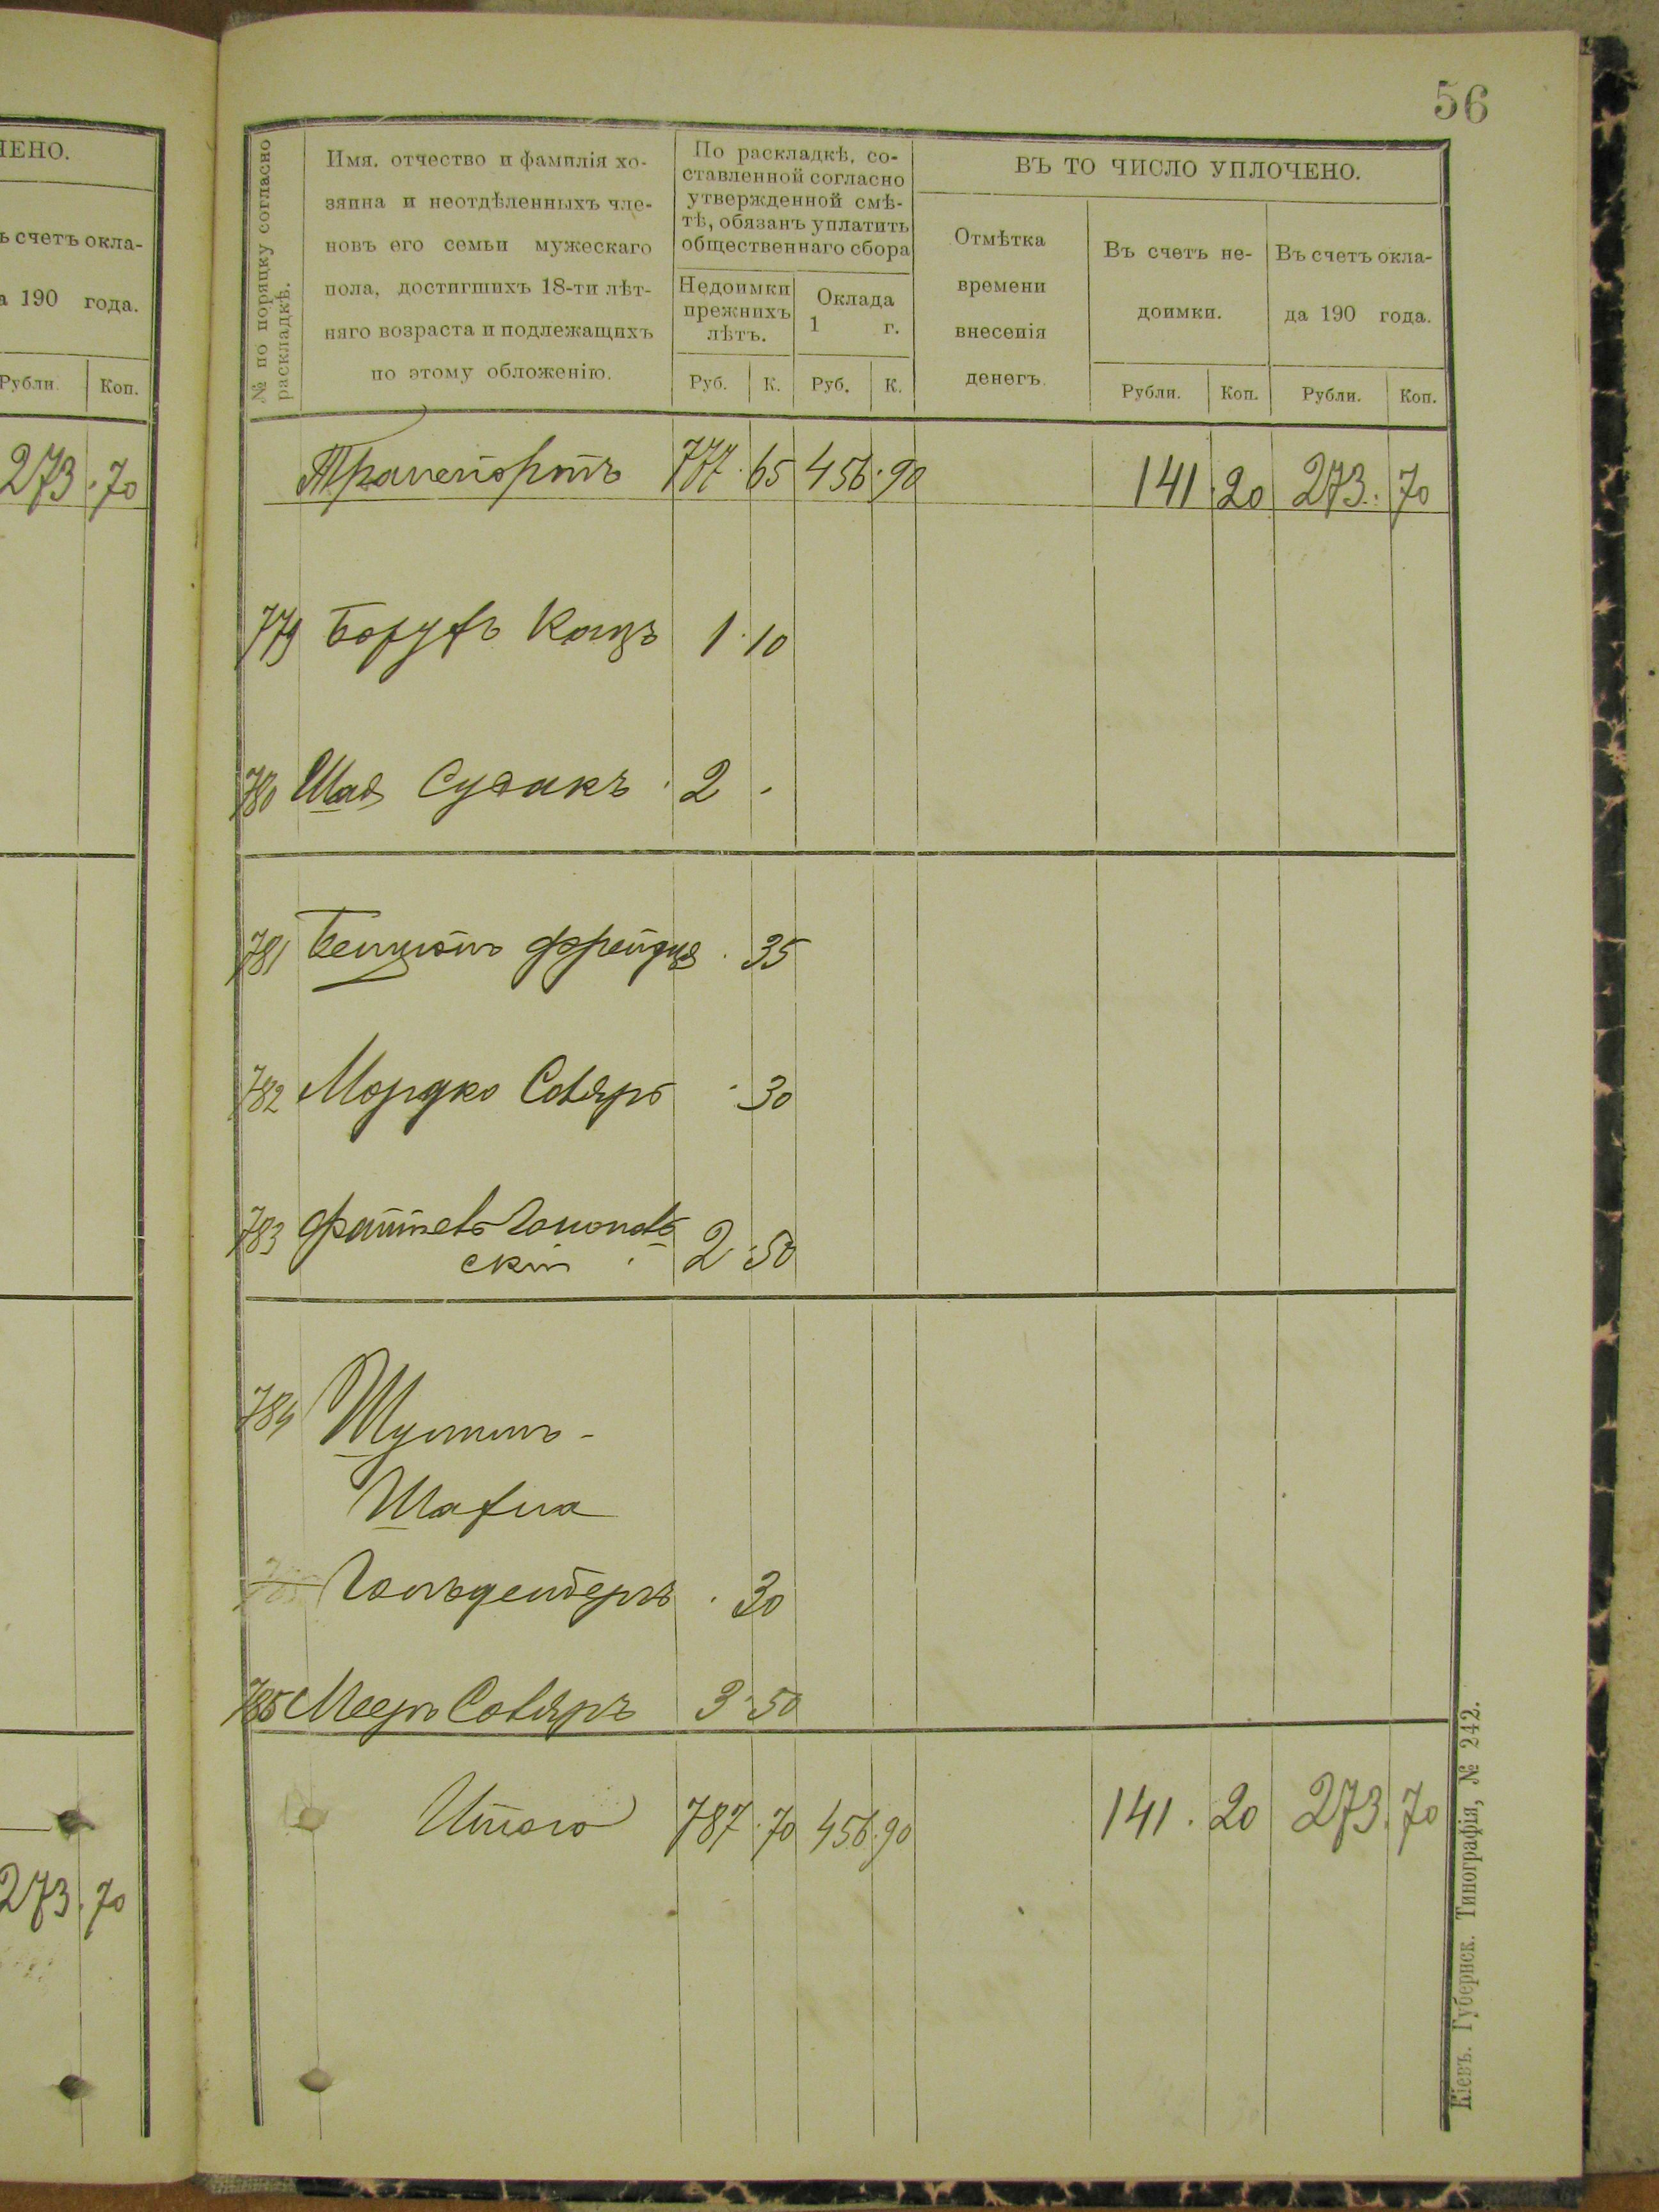 ЧЕНО.
ъ счетъ окла-
а 190 года.
Рубли. Коп.
273 . 70
273 . 70
56
№ по порядку согласно
раскладкѣ.
Имя, отчество и фамилія хо-
зяина и неотдѣленныхъ чле-
новъ его семьи мужескаго
пола, достигшихъ 18-ти лѣт-
няго возраста и подлежащихъ
по этому обложенію.
По раскладкѣ, со-
ставленной согласно
утвержденной смѣ-
тѣ, обязанъ уплатить
общественнаго сбора
Недоимки
прежнихъ
лѣтъ.
Оклада
1 г.
Руб. К. Руб. К.
ВЪ ТО ЧИСЛО УПЛОЧЕНО.
Отмѣтка
времени
внесенія
денегъ.
Въ счетъ не-
доимки.
Въ счетъ окла-
да 190 года.
Рубли. Коп. Рубли. Коп.
Транспортъ 777 . 65 456 . 90 141 . 20 273 . 70
779 Борухъ Кацъ 1 . 10
780 Шая Судакъ . 2 .
781 . 35
782 Мордко Совяръ . 30
783 2 . 50
скій
784
Шахна
Гольденберъ . 30
785 Мееръ Совяръ 3 . 50
Итого 787 . 70 456 . 90 141 . 20 273 . 70
Кіевъ. Губернск. Типографія, № 242.